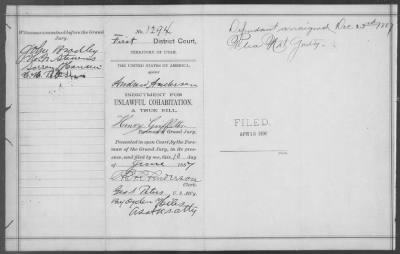 Witnesses examined before the Grand Jury.
John Woodley
Sorren Hansen
No. 1294
First District Court,
TERRITORY OF UTAH.
THE UNITED STATES OF AMERICA,
versus
Andrew Anderson
INDICTMENT FOR
UNLAWFUL COHABITATION.
A TRUE BILL.
Henry
Foreman of Grand Jury.
Presented in open Court, by the Foreman of the Grand Jury, in its presence, and filed by me, this 10 day
of June 1887
Henderson
Clerk.
Geo S Peters U. S. Att'y.
By Ogden Hiles
Asst US atty
Defendant arraigned Dec 23rd 1887
Plea Not Guilty.
FILED.